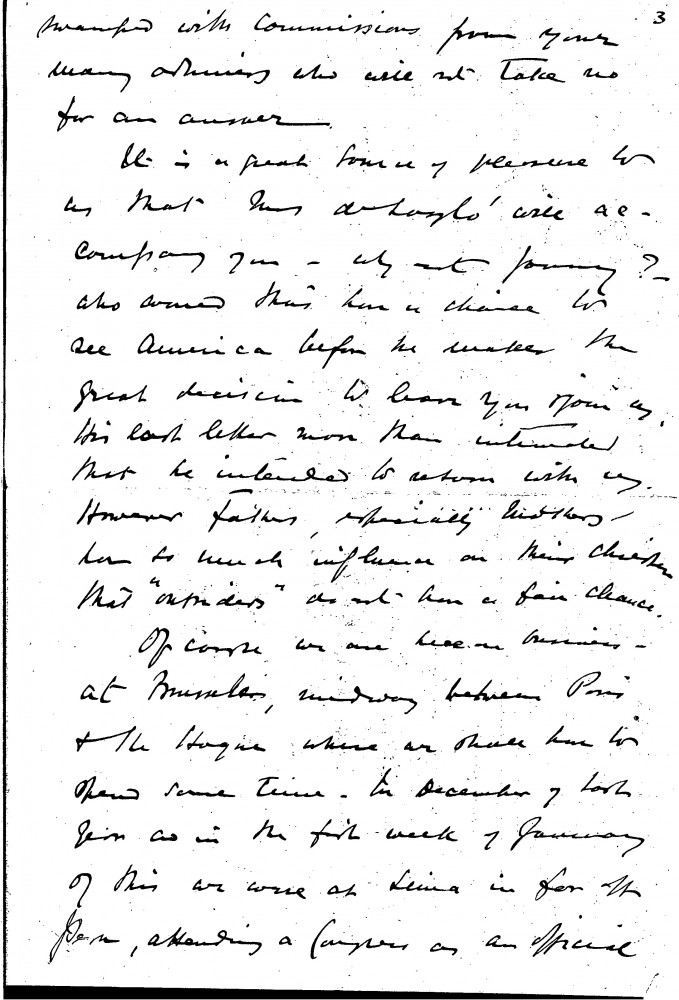 3
swamped with commissions from your
many admirers who will not take no
for an answer.
It is a great source of pleasure to
us that Mrs de Laszló will ac-
company you – why not
who would thus have a chance to
see America before he makes the
great decision to leave you & join us.
His last letter more than intimated
that he intended to return with us.
However fathers, especially Mothers –
have so much influence on their children
that "outsiders" do not have a fair chance.
Of course we are here on business –
at Brussels, midway between Paris
& The Hague where we shall have to
spend some time – In December of last
year as in the first week of January
of this we were at Lima in far off
Peru, attending a Congress as an official